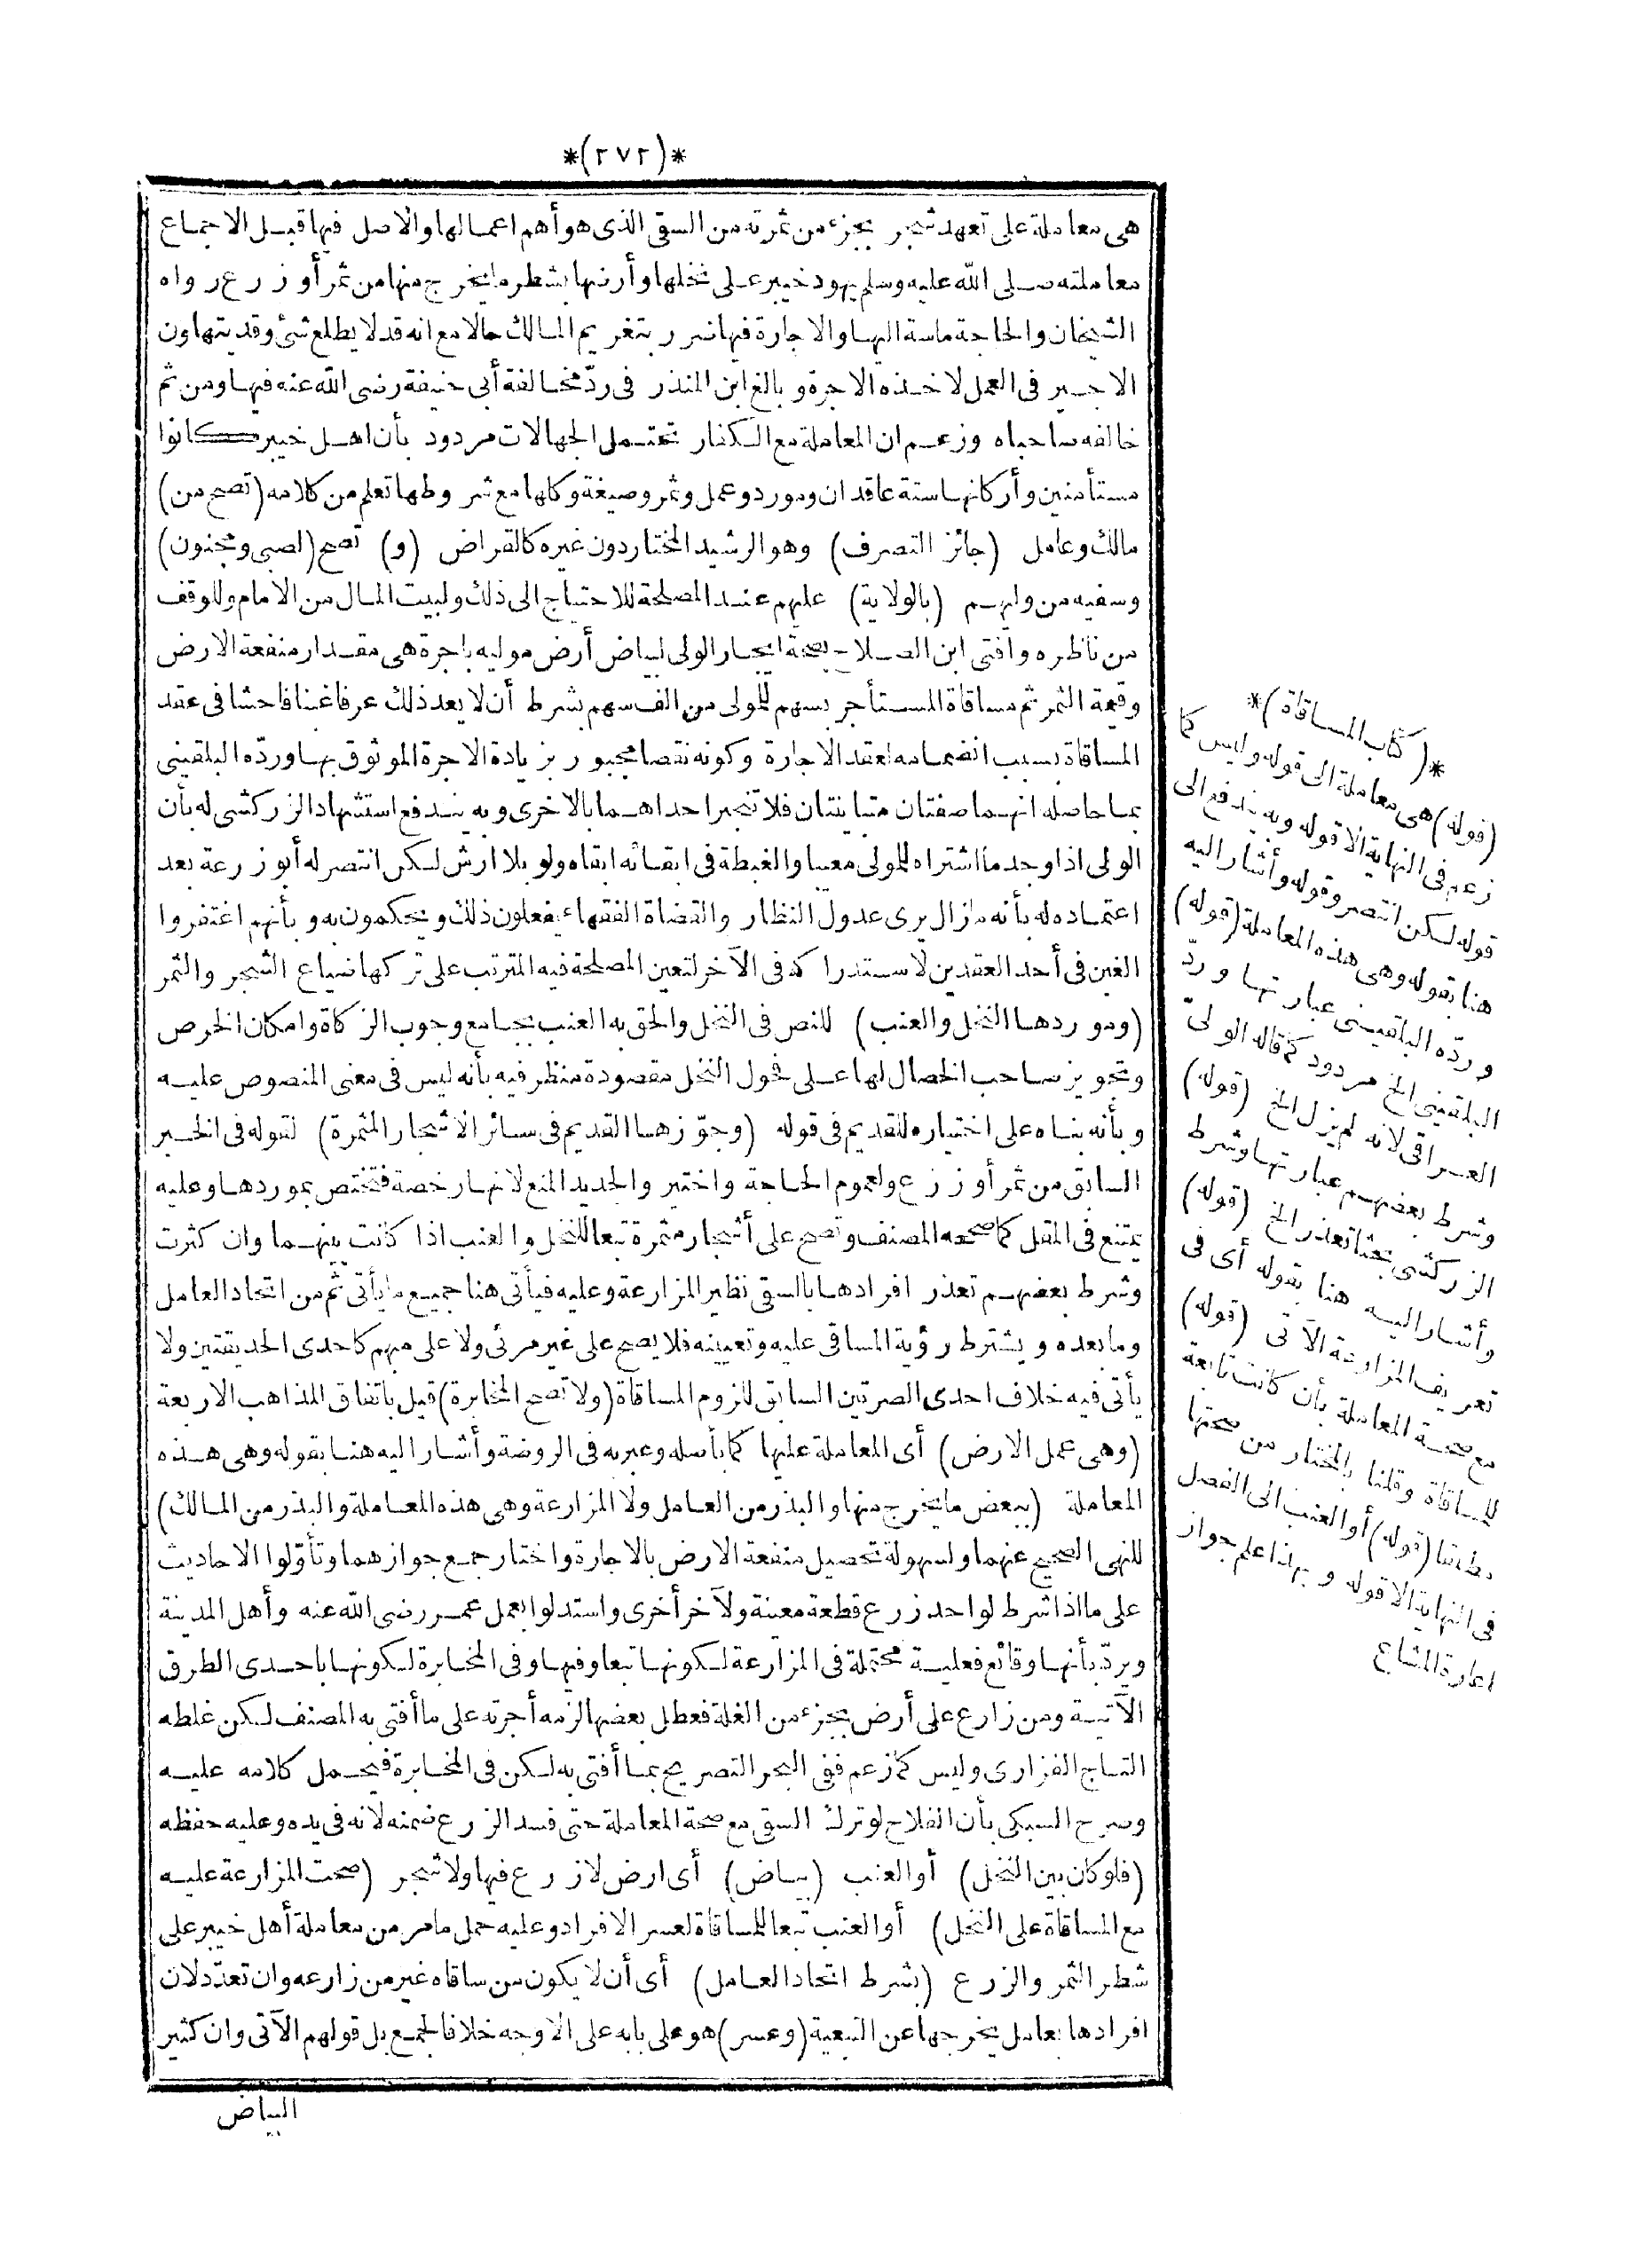 *(٢٧٢)*
هى معاملة على تعهد شجر بجزء من ثمرته من السقى الذى هو أهم اعمالها والاصل فيها قبل الاجماع
معاملته صلى الله عليه وسلم يهود خيبر على نخلها وأرضها بشطر ما يخرج منها من ثمر أو زرع رواه
الشيخان والحاجة ماسة اليها والاجارة فيها ضرر بتغريم المالك حالا مع انه قد لا يطلع شئ وقد يتهاون
الاجير فى العمل لاخذه الاجرة وبالغ ابن المنذر فى ردّ مخالفة أبى حنيفة رضى الله عنه فيها ومن ثم
خالفه صاحباه وزعم ان المعاملة مع الكفار تحتمل الجهالات مردود بأن اهل خيبر كانوا
مستأمنين وأركانها ستة عاقدان ومورد وعمل وثمر وصيغة وكلها مع شروطها تعلم من كلامه (تصح من)
مالك وعامل (جائز التصرف) وهو الرشيد المختار دون غيره كالقراض (و) تصح (لصبى ومجنون)
وسفيه من وليهم (بالولاية) عليهم عند المصلحة للاحتياج الى ذلك ولبيت المال من الامام وللوقف
من ناظره وافتى ابن الصلاح بصحة ايجار الولى لبياض أرض موليه باجرة هى مقدار منفعة الارض
وقيمة الثمر ثم مساقاة المستأجر بسهم للمولى من الف سهم بشرط أن لا يعد ذلك عرفا غبنا فاحشا فى عقد
المساقاة بسبب انضمامه لعقد الاجارة وكونه نقصا مجبورا بزيادة الاجرة الموثوق بها وردّه البلقينى
بما حاصله انهما صفقتان متباينتان فلا تنجبر احداهما بالاخرى وبه يندفع استشهاد الزركشى له بأن
الولى اذا وجد ما اشتراه للمولى معيبا والغبطة فى ابقائه ابقاه ولو بلا ارش لكن انتصر له أبو زرعة بعد
اعتماده له بأنه ما زال يرى عدول النظار والقضاة الفقهاء يفعلون ذلك ويحكمون به وبأنهم اغتفروا
الغبن فى أحد العقدين لاستدراكه فى الآخر لتعين المصلحة فيه المترتب على تركها ضياع الشجر والثمر
(وموردها النخل والعنب) للنص فى النخل والحق به العنب بجامع وجوب الزكاة وامكان الخرص
وتجويز صاحب الخصال لها على فحول النخل مقصودة منظر فيه بأنه ليس فى معنى المنصوص عليه
وبأنه بناه على اختياره للقديم فى قوله (وجوّزها القديم فى سائر الاشجار المثمرة) لقوله فى الخبر
السابق من ثمر أو زرع ولعموم الحاجة واختير والجديد المنع لانها رخصة فتختص بموردها وعليه
يمتنع فى المقل كما صححه المصنف وتصح على أشجار مثمرة تبعا للنخل والعنب اذا كانت بينهما وان كثرت
وشرط بعضهم تعذر افرادها بالسقى نظير المزارعة وعليه فيأتى هنا جميع ما يأتى ثم من اتحاد العامل
وما بعده ويشترط رؤية المساقى عليه وتعيينه فلا يصح على غير مرئى ولا على مبهم كاحدى الحديقتين ولا
يأتى فيه خلاف احدى الصرتين السابق للزوم المساقاة (ولا تصح المخابرة) قيل باتفاق المذاهب الاربعة
(وهى عمل الارض) أى المعاملة عليها كما بأصله وعبر به فى الروضة وأشار اليه هنا بقوله وهى هذه
المعاملة (ببعض ما يخرج منها والبذر من العامل ولا المزارعة وهى هذه المعاملة والبذر من المالك)
للنهى الصحيح عنهما ولسهولة تحصيل منفعة الارض بالاجارة واختار جمع جوازهما وتأوّلوا الاحاديث
على ما اذا شرط لواحد زرع قطعة معينة ولآخر أخرى واستدلوا بعمل عمر رضى الله عنه وأهل المدينة
ويردّ بأنها وقائع فعلية محتملة فى المزارعة لكونها تبعا وفيها وفى المخابرة لكونها باحدى الطرق
الآتية ومن زارع على أرض بجزء من الغلة فعطل بعضها لزمه أجرته على ما أفتى به المصنف لكن غلطه
التاج الفزارى وليس كما زعم ففى البحر التصريح بما أفتى به لكن فى المخابرة فيحمل كلامه عليه
وصرح السبكى بأن الفلاح لو ترك السقى مع صحة المعاملة حتى فسد الزرع ضمنه لانه فى يده وعليه حفظه
(فلو كان بين النخل) أو العنب (بياض) أى ارض لا زرع فيها ولا شجر (صحت المزارعة عليه
مع المساقاة على النخل) أو العنب تبعا للمساقاة لعسر الافراد وعليه حمل ما مر من معاملة أهل خيبر على
شطر الثمر والزرع (بشرط اتحاد العامل) أى أن لا يكون من ساقاه غير من زارعه وان تعدّد لان
افرادها بعامل يخرجها عن التبعية (وعسر) هو على بابه على الاوجه خلافا لجمع بل قولهم الآتى وان كثير
البياض
*(كتاب المساقاة)*
(قوله) هى معاملة الى قوله وليس كما
زعم فى النهاية الا قوله وبه يندفع الى
قوله لكن انتصر وقوله وأشار اليه
هنا بقوله وهى هذه المعاملة (قوله)
وردّه البلقينى عبارتها وردّ
البلقينى الخ مردود كما قاله الولىّ
العراقى لانه لم يزل الخ (قوله)
وشرط بعضهم عبارتها وشرط
الزركشى بحثا تعذر الخ (قوله)
وأشار اليه هنا بقوله أى فى
تعريف المزارعة الآتى (قوله)
مع صحة المعاملة بأن كانت تابعة
للمساقاة وقلنا بالمختار من صحتها
مطلقا (قوله) أو العنب الى الفصل
فى النهاية الا قوله وبهذا علم جواز
اعارة المشاع